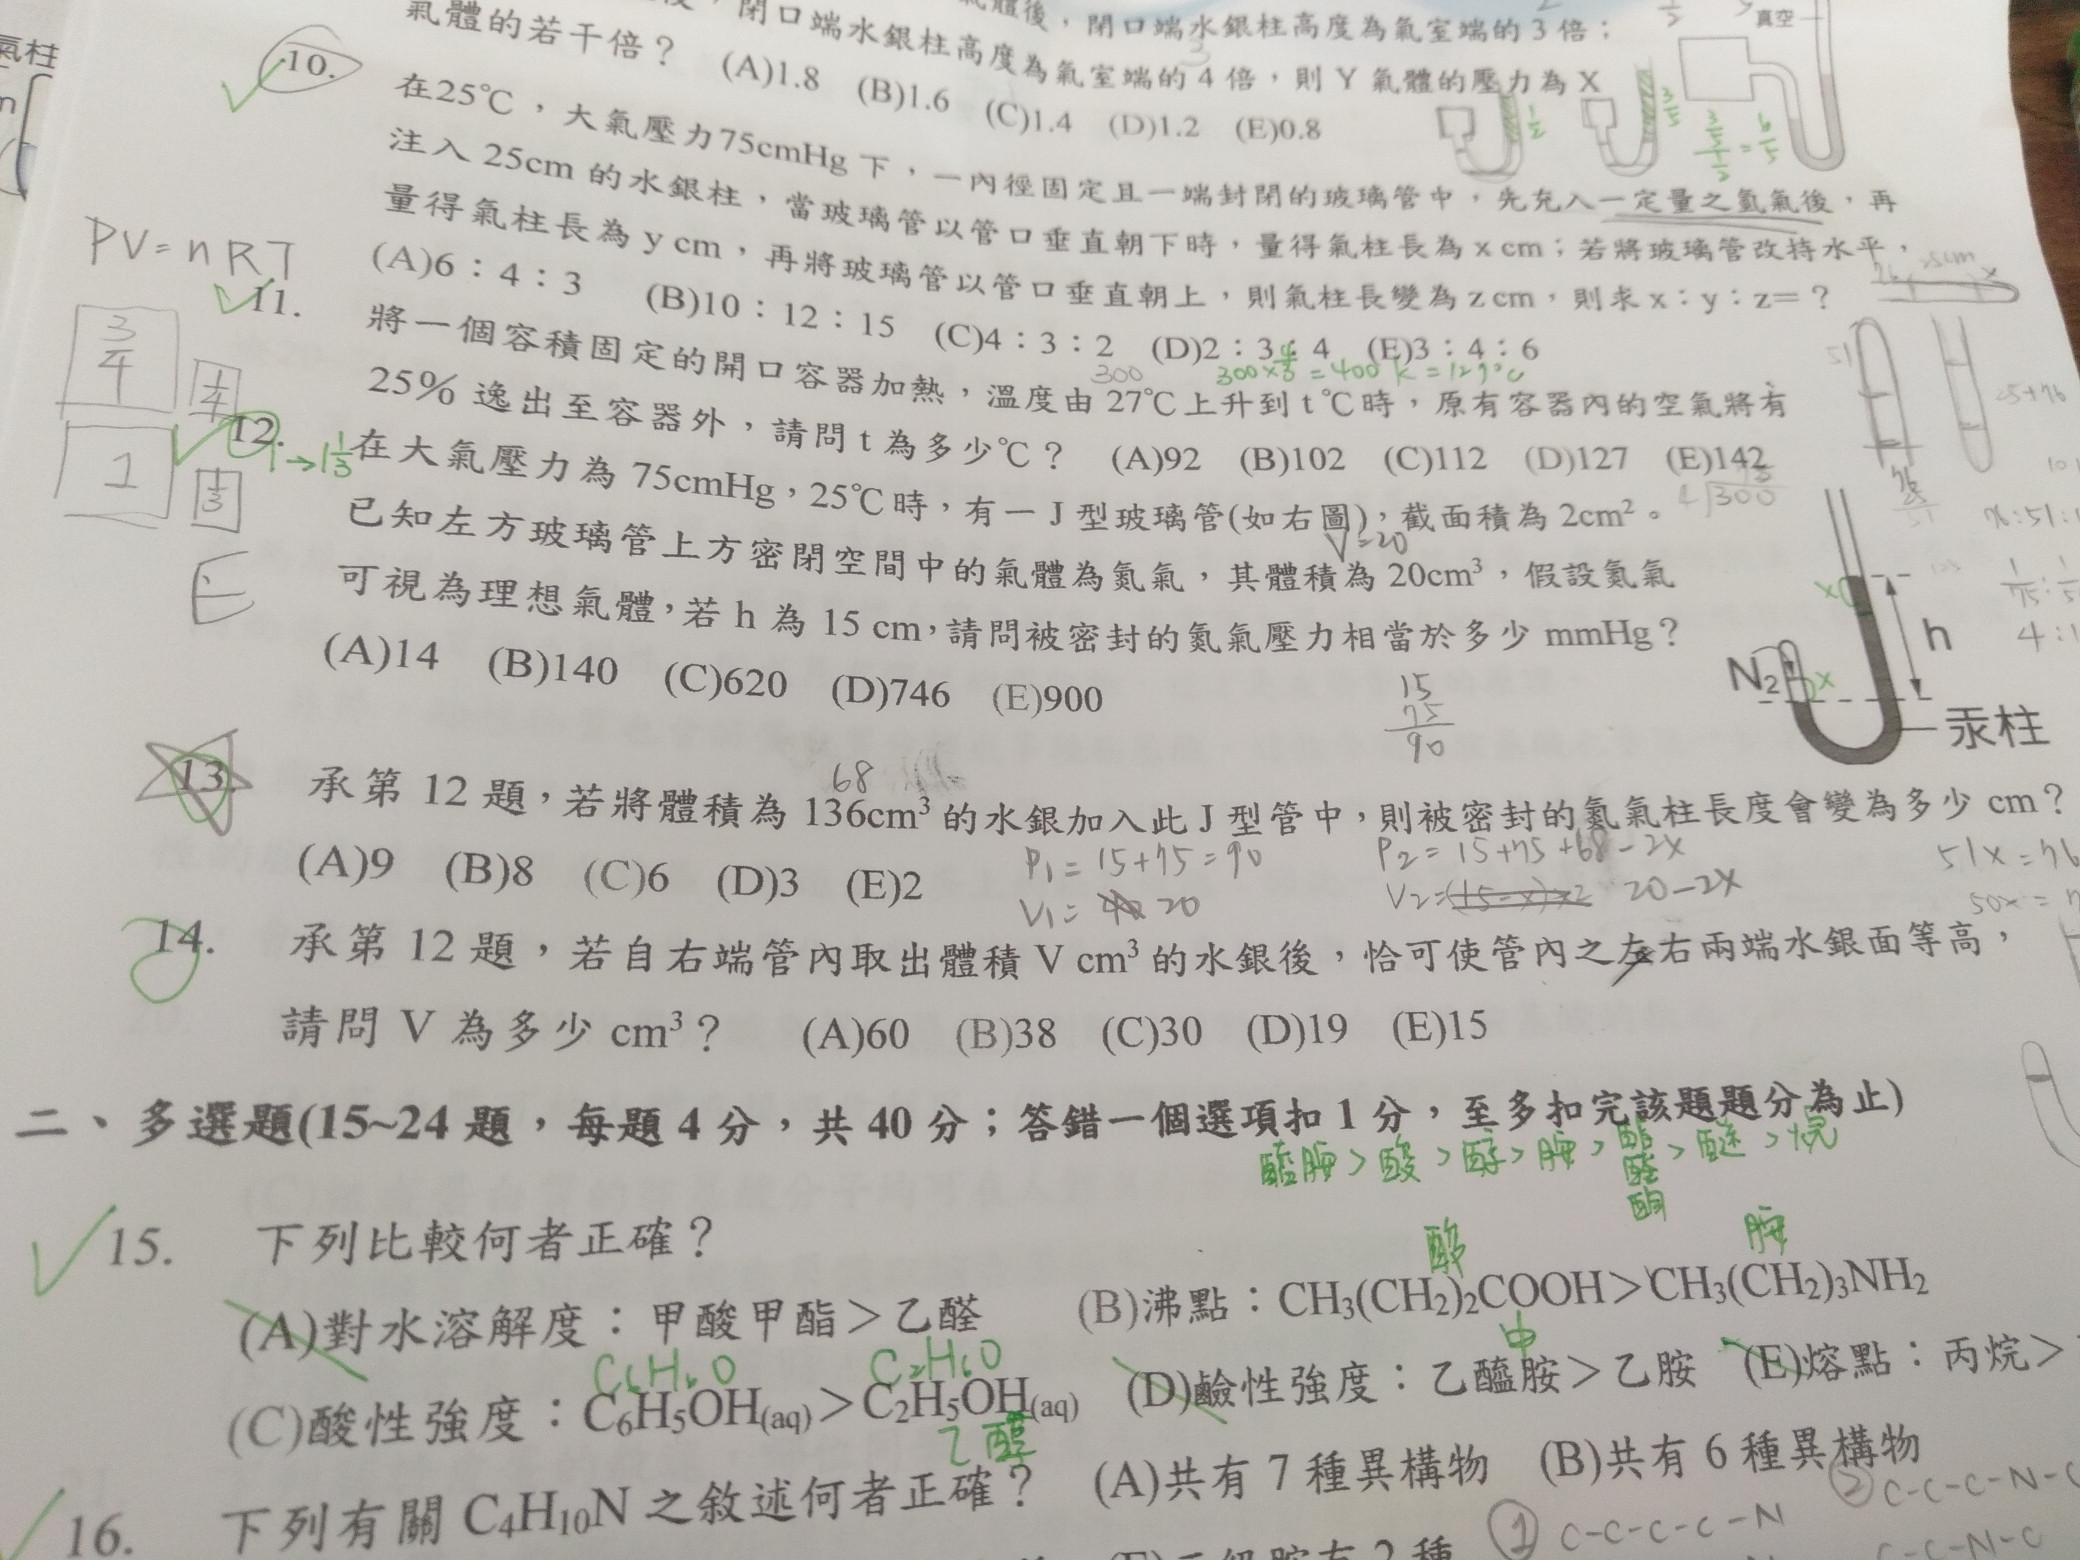 氣體後，閉口端水銀柱高度為氣室端的3倍；
閉口端水銀柱高度為氣室端的4倍，則Y氣體的壓力為X
氣體的若干倍？ (A)1.8 (B)1.6 (C)1.4 (D)1.2 (E)0.8
真空
10. 在25℃，大氣壓力75cmHg下，一內徑固定且一端封閉的玻璃管中，先充入一定量之氦氣後，再
注入25cm的水銀柱，當玻璃管以管口垂直朝下時，量得氣柱長為x cm；若將玻璃管改持水平，
量得氣柱長為y cm，再將玻璃管以管口垂直朝上，則氣柱長變為z cm，則求x：y：z=？
(A)6：4：3 (B)10：12：15 (C)4：3：2 (D)2：3：4 (E)3：4：6
PV=nRT
300 300×4/3=400K=127℃
11. 將一個容積固定的開口容器加熱，溫度由27℃上升到t℃時，原有容器內的空氣將有
25%逸出至容器外，請問t為多少℃？ (A)92 (B)102 (C)112 (D)127 (E)142
3/4 1/4
1 1/3
1→1 1/3
12. 在大氣壓力為75cmHg，25℃時，有一J型玻璃管(如右圖)，截面積為2cm²。
V=20
已知左方玻璃管上方密閉空間中的氣體為氮氣，其體積為20cm³，假設氮氣
可視為理想氣體，若h為15 cm，請問被密封的氮氣壓力相當於多少mmHg？
(A)14 (B)140 (C)620 (D)746 (E)900
15
75
90
N₂
h
汞柱
68
13. 承第12題，若將體積為136cm³的水銀加入此J型管中，則被密封的氮氣柱長度會變為多少cm？
(A)9 (B)8 (C)6 (D)3 (E)2
P₁=15+75=90 P₂=15+75+68-2X
V₁= 20 V₂= 20-2X
14. 承第12題，若自右端管內取出體積V cm³的水銀後，恰可使管內之左右兩端水銀面等高，
請問V為多少cm³？ (A)60 (B)38 (C)30 (D)19 (E)15
二、多選題(15~24題，每題4分，共40分；答錯一個選項扣1分，至多扣完該題題分為止)
醯胺>酸>醇>胺>酯醛酮>醚>烴
15. 下列比較何者正確？
(A)對水溶解度：甲酸甲酯＞乙醛 (B)沸點：CH₃(CH₂)₂COOH＞CH₃(CH₂)₃NH₂
胺
中
C₆H₆O C₂H₆O
(C)酸性強度：C₆H₅OH(aq)＞C₂H₅OH(aq) (D)鹼性強度：乙醯胺＞乙胺 (E)熔點：丙烷＞
乙醇
16. 下列有關C₄H₁₀N之敘述何者正確？ (A)共有7種異構物 (B)共有6種異構物
① C-C-C-C-N
② C-C-C-N-C